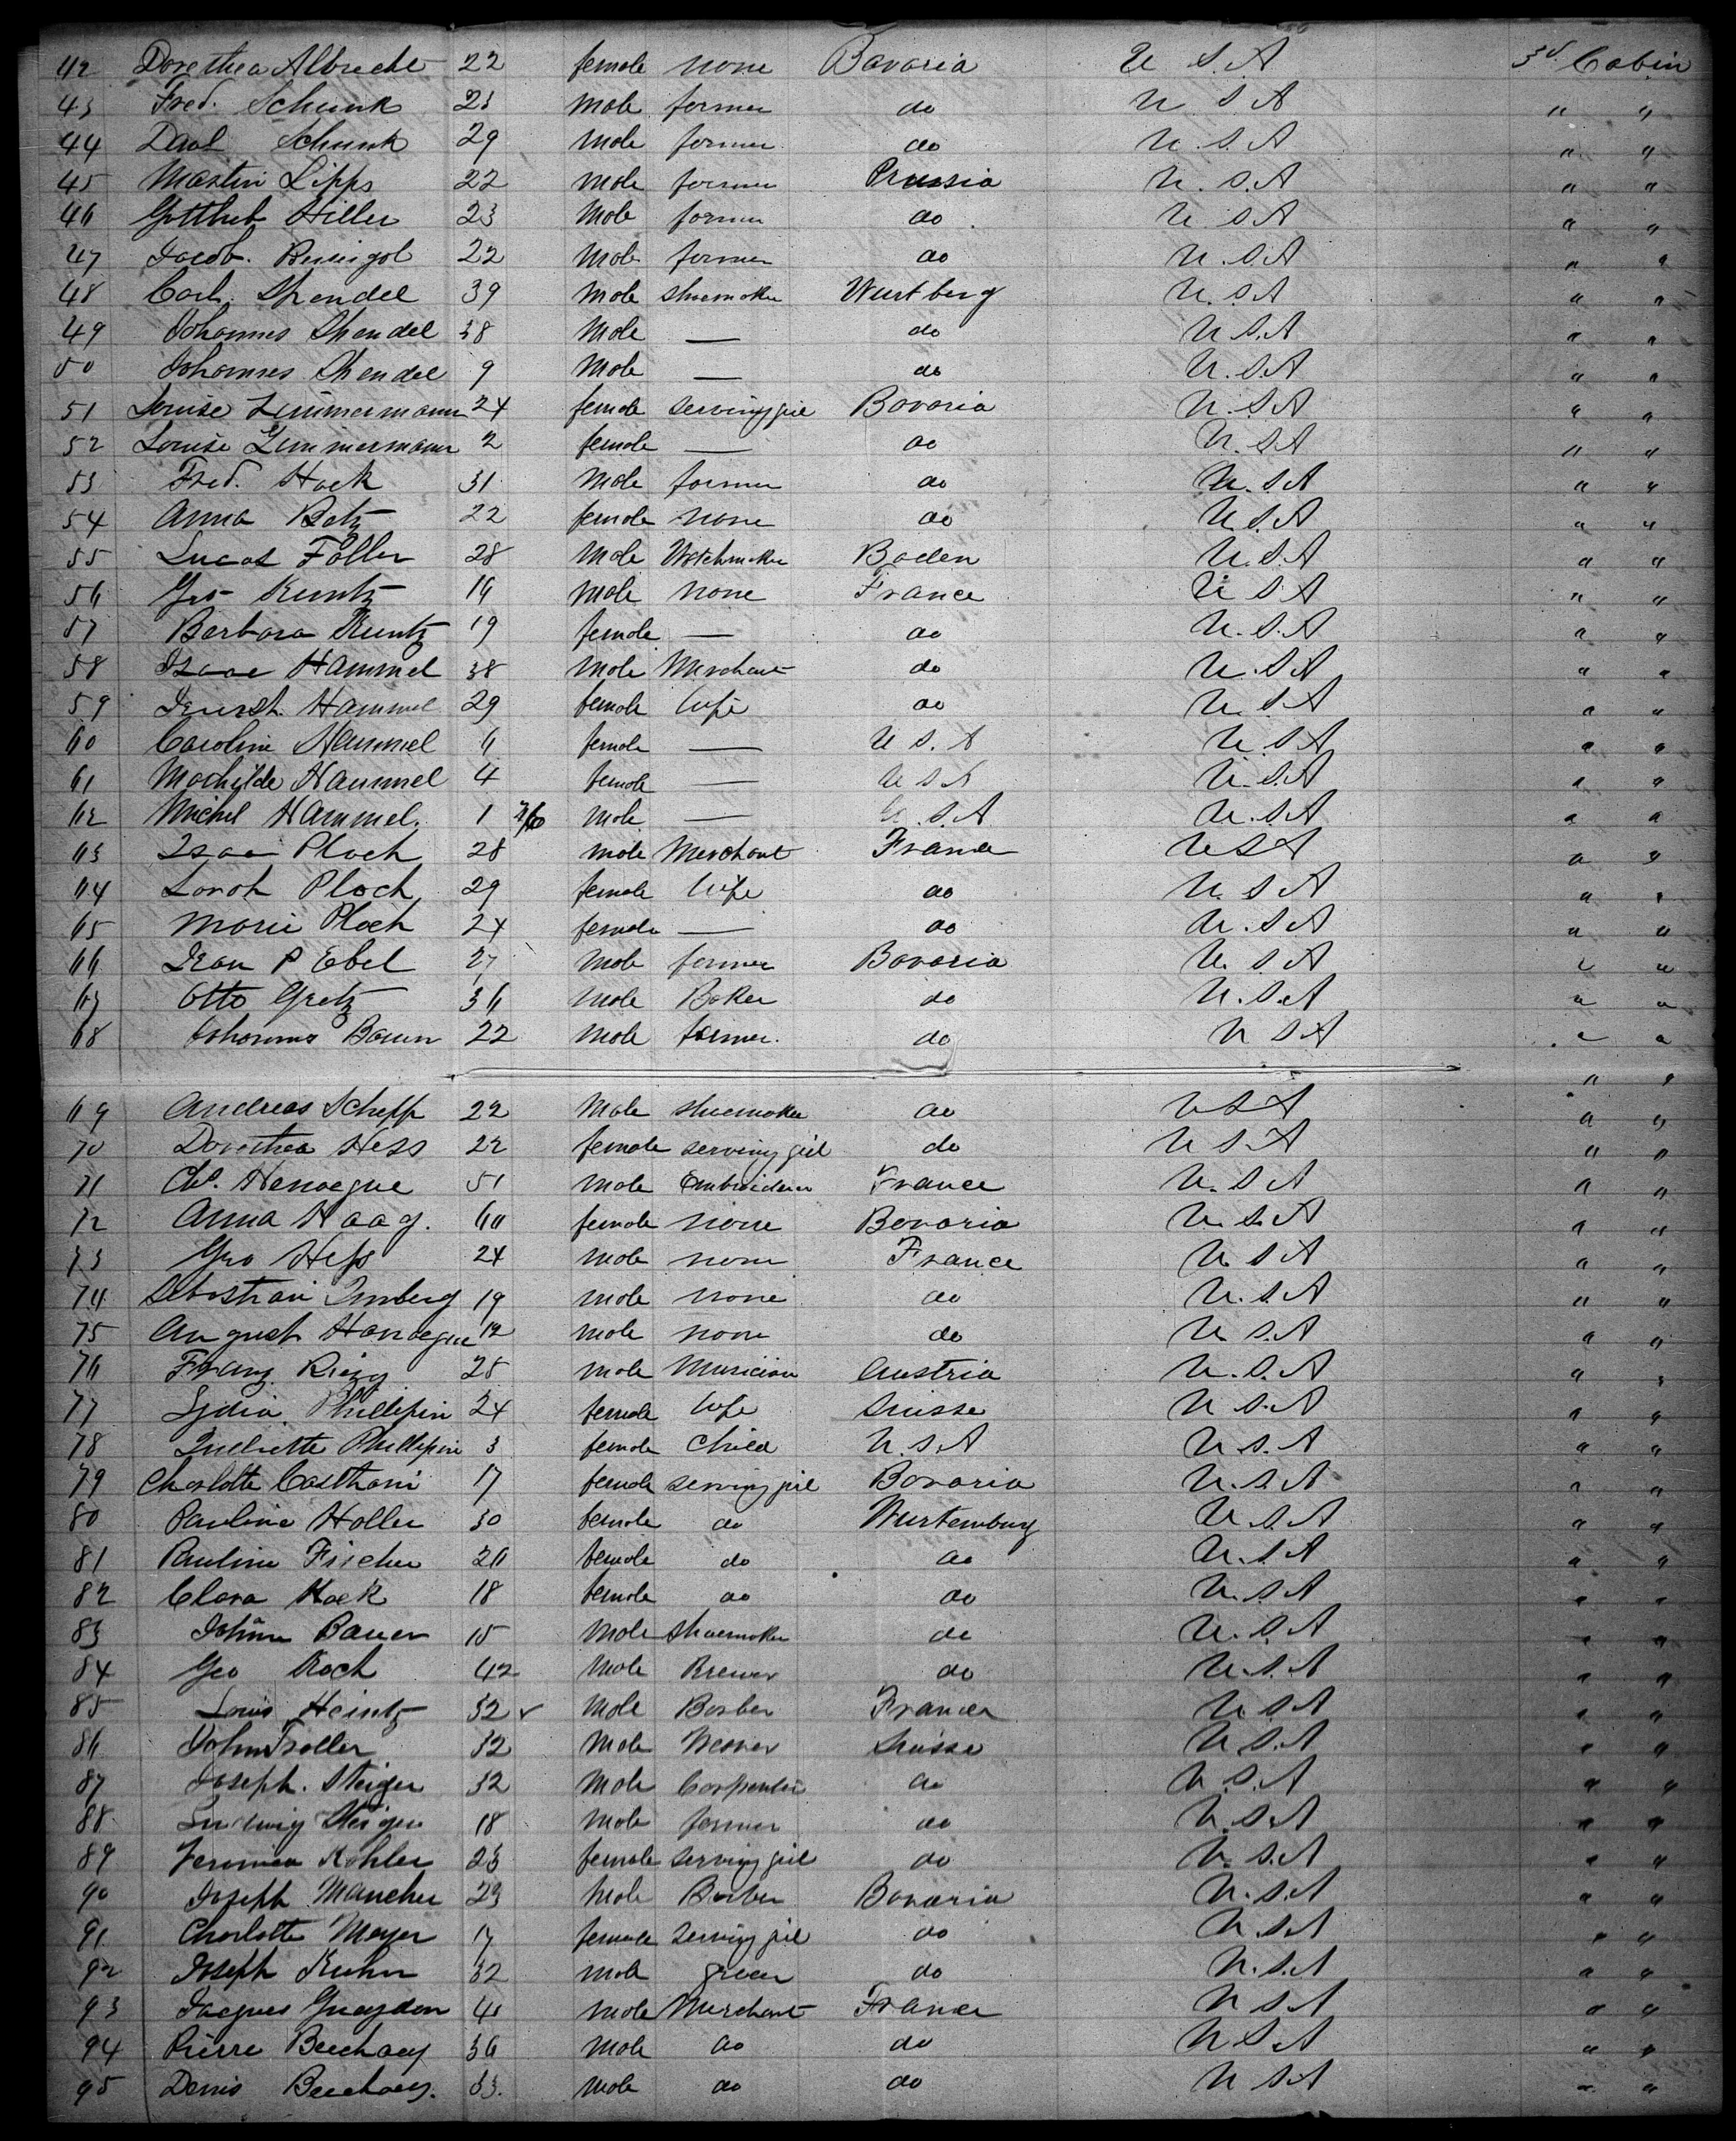 42 Dorethea Albrecht 22 female none Bavaria U S. A 3d. Cabin
43 Fred. Schunk 23 male farmer do U S A " "
44 Schunk 29 male farmer do U. S. A " "
45 Martin Lipps 22 male farmer Prussia U. S. A " "
46 Gottlieb Hiller 23 male farmer do U S A " "
47 Jacob. 22 male farmer do U. S. A " "
48 Carl. Shendel 39 male shoemaker Wurtberg U. S. A " "
49 Johannes Shendel 38 male — do U S. A " "
50 Johannes Shendel 9 male — do U. S. A " "
51 Louise Zimmermann 24 female serving girl Bavaria U. S. A " "
52 Louise Zimmermann 2 female — do U. S. A " "
53 Fred. Hock 31 male farmer do U. S. A " "
54 Anna Betz 22 female none do U. S. A " "
55 Lucas Faller 28 male Watchmaker Baden U. S. A " "
56 Geo Kuntz 16 male none France U S A " "
57 Barbara Kuntz 19 female — do U. S. A " "
58 Isaac Hammel 38 male Merchant do U. S. A " "
59 Hammel 29 female wife do U. S. A " "
60 Caroline Hammel 6 female — U S. A U. S. A " "
61 Mathilde Hammel 4 female — U S A U. S. A " "
62 Michel Hammel. 1 male — U. S. A U. S. A " "
63 Isaac Ploch 28 male Merchant France U S A " "
64 Sarah Ploch 29 female wife do U. S A " "
65 Marie Ploch 24 female — do U. S. A " "
66 Jean P Ebel 27 male farmer Bavaria U. S A " "
67 Otto Gretz 36 male Baker do U. S. A " "
68 Johannes Baum 22 male farmer. do U S A " "
" "
69 Andreas Schepp 22 male shoemaker do U S A " "
70 Dorothea Hess 22 female serving girl do U S. A " "
71 Chs. Henoegue 51 male Embroiderer France U. S A " "
72 Anna Haag. 60 female none Bavaria U. S. A " "
73 Geo Hess 24 male none France U. S A " "
74 Sebastian 19 male none do U. S. A " "
75 August Hanoegue 12 male none do U S. A " "
76 Franz Rieg 28 male Musician Austria U. S. A " "
77 Lydia Phillipin 24 female wife Suisse U S. A " "
78 Juliette Phillipin 3 female child U. S. A U S. A " "
79 Charlotte 17 female serving girl Bavaria U. S. A " "
80 Pauline Holler 30 female do Wurtemburg U. S. A " "
81 Pauline Fischer 26 female do do U. S. A " "
82 Clara Hock 18 female do do U. S. A " "
83 Bauer 15 male shoemaker do U. S. A " "
84 Geo Koch 42 male Brewer do U. S. A " "
85 Louis Heintz 32 ✓ male Barber France U S A " "
86 John Troller 32 male Weaver Suisse U S. A " "
87 Joseph. Steiger 32 male Carpenter do U. S. A " "
88 Ludwig Steiger 18 male farmer do U. S. A " "
89 Veronica Kohler 23 female serving girl do U. S. A " "
90 Joseph Mancher 29 male Barber Bavaria U. S. A " "
91 Charlotte Mayer 17 female serving girl do U. S. A " "
92 Joseph Kuhn 32 male grocer do U. S. A " "
93 Jacques Guaydon 41 male Merchant France U S A " "
94 Pierre 36 male do do U S A " "
95 Denis 33. male do do U S A " "